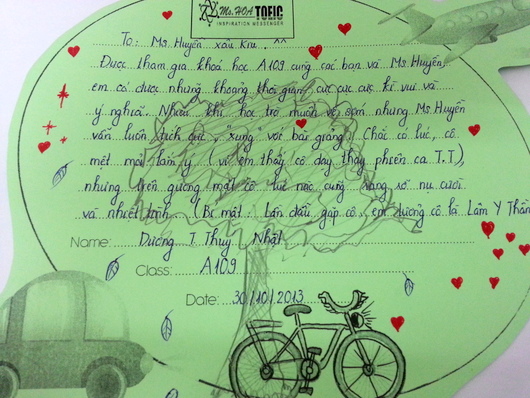 Ms. HOA TOEIC
INSPIRATION MESSENGER
To: Ms. Huyền xấu xíu.. ^^
Được tham gia khoá học A109 cùng các bạn và Ms Huyền,
em có được những khoảng thời gian cực cực cực kì vui và
ý nghĩa. Nhiều khi, học trò muốn về sớm nhưng Ms. Huyền
vẫn luôn tích cực, "xung" với bài giảng. Chắc có lúc, cô
mệt mỏi lắm ý (vì em thấy cô dạy thấy phseen ca T.T),
nhưng trên gương mặt cô lúc nào cũng rạng rỡ nụ cười
và nhiệt tình. (Bí mật: Lần đầu gặp cô, em tưởng cô là Lâm Y Thần
Name: Dương T. Thuỳ Nhật
Class: A109
Date: 30/10/2013